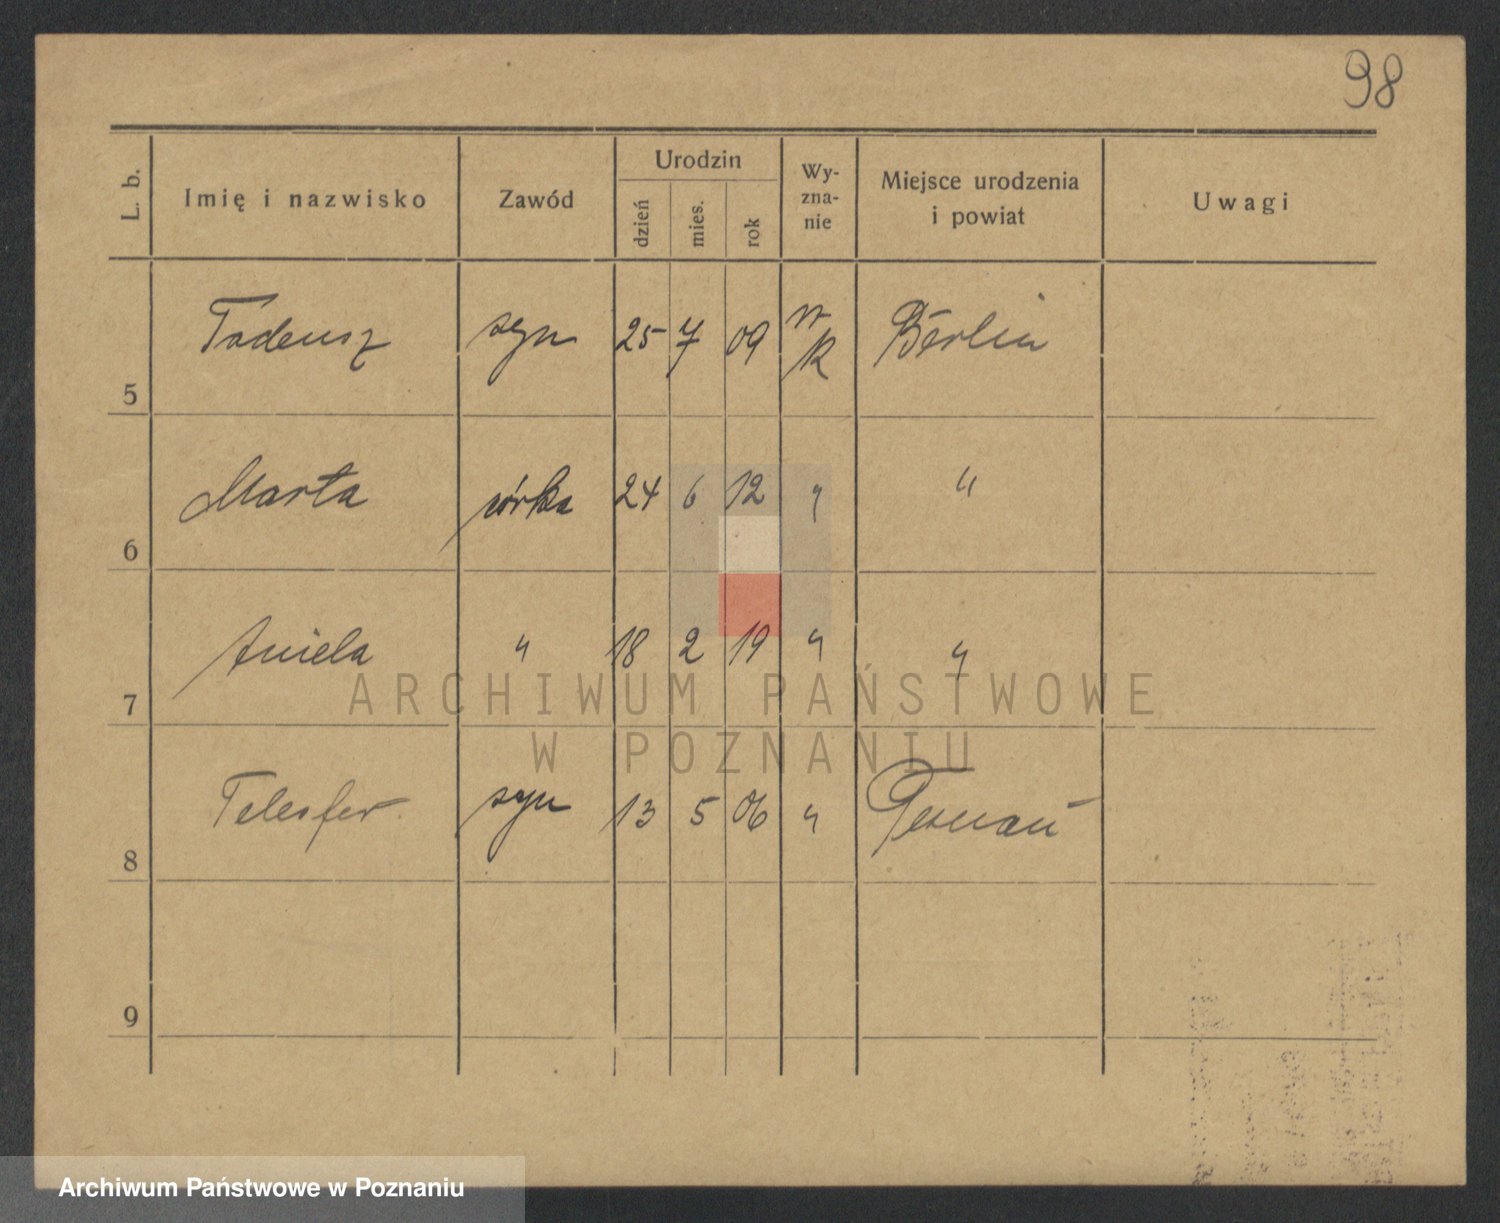 98
L. b.
Imię i nazwisko
Zawód
Urodzin
dzień
mies.
rok
Wy-
zna-
nie
Miejsce urodzenia
i powiat
Uwagi
5 Tadeusz syn 25 7 09 rz k Berlin
6 Marta córka 24 6 12 " "
7 Aniela " 18 2 19 " "
8 Telesfor syn 13 5 06 " Poznań
9
ARCHIWUM PAŃSTWOWE
W POZNANIU
Archiwum Państwowe w Poznaniu